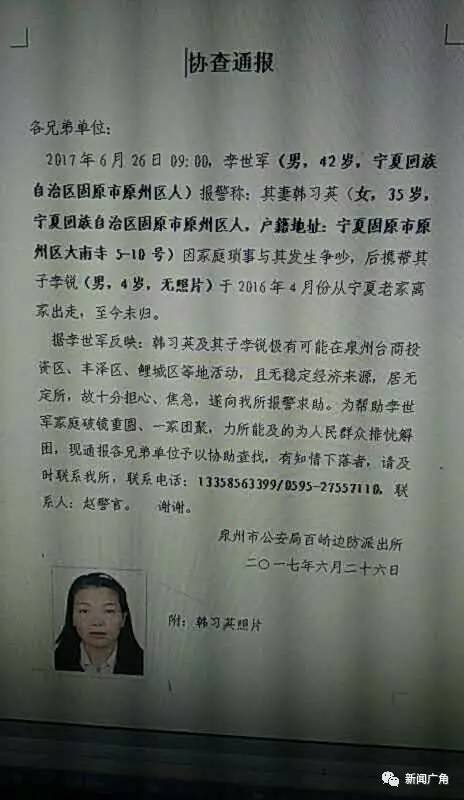 协查通报
各兄弟单位：
2017年6月26日09:00，李世军（男，42岁，宁夏回族
自治区固原市原州区人）报警称：其妻韩习英（女，35岁，
宁夏回族自治区固原市原州区人，户籍地址：宁夏固原市原
州区大南寺5-10号）因家庭琐事与其发生争吵，后携带其
子李锐（男，4岁，无照片）于2016年4月份从宁夏老家离
家出走，至今未归。
据李世军反映：韩习英及其子李锐极有可能在泉州台商投
资区、丰泽区、鲤城区等地活动，且无稳定经济来源，居无
定所，故十分担心、焦急，遂向我所报警求助。为帮助李世
军家庭破镜重圆、一家团聚，力所能及的为人民群众排忧解
困，现通报各兄弟单位予以协助查找，有知情下落者，请及
时联系我所，联系电话：13358563399/0595-27557110，联
系人：赵警官。 谢谢。
泉州市公安局百崎边防派出所
二〇一七年六月二十六日
附：韩习英照片
新闻广角